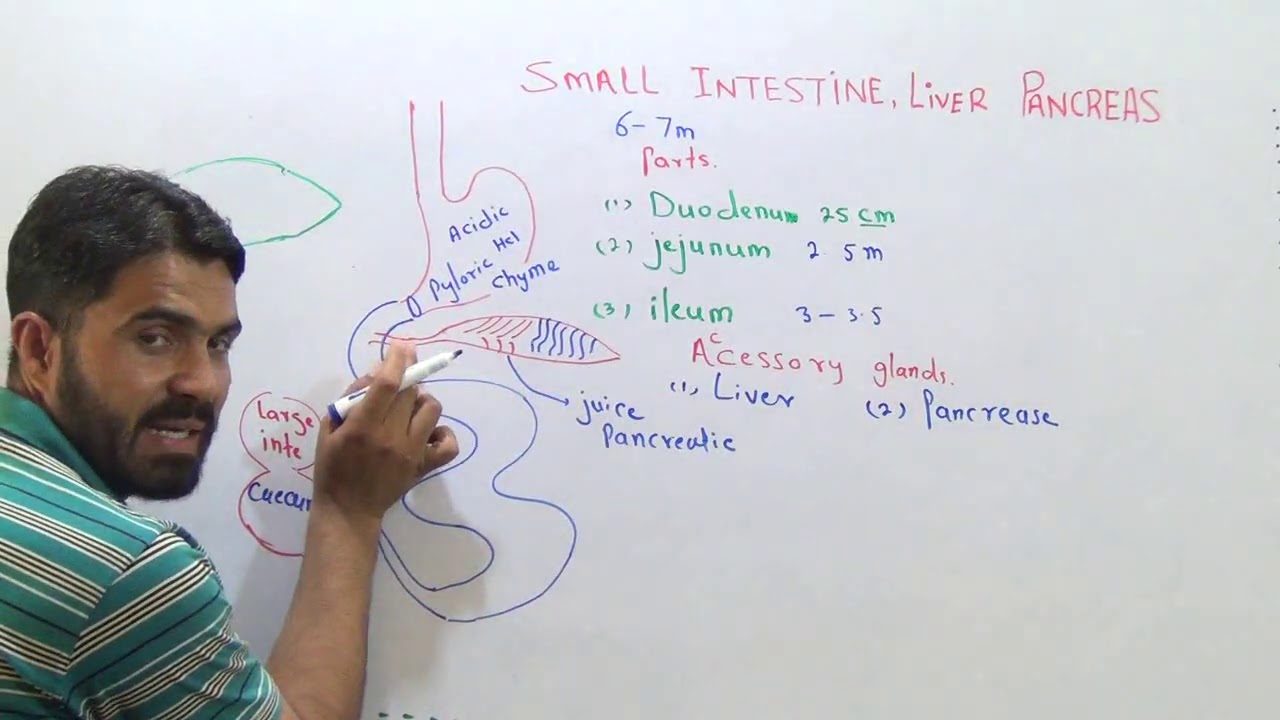 SMALL INTESTINE, LIVER PANCREAS
6-7m
Parts.
(1) Duodenum 25 cm
(2) jejunum 2.5 m
(3) ileum 3-3.5
Accessory glands.
(1) Liver (2) Pancrease
Acidic
Hcl
Pyloric chyme
juice
Pancreatic
Large
inte
Caecum